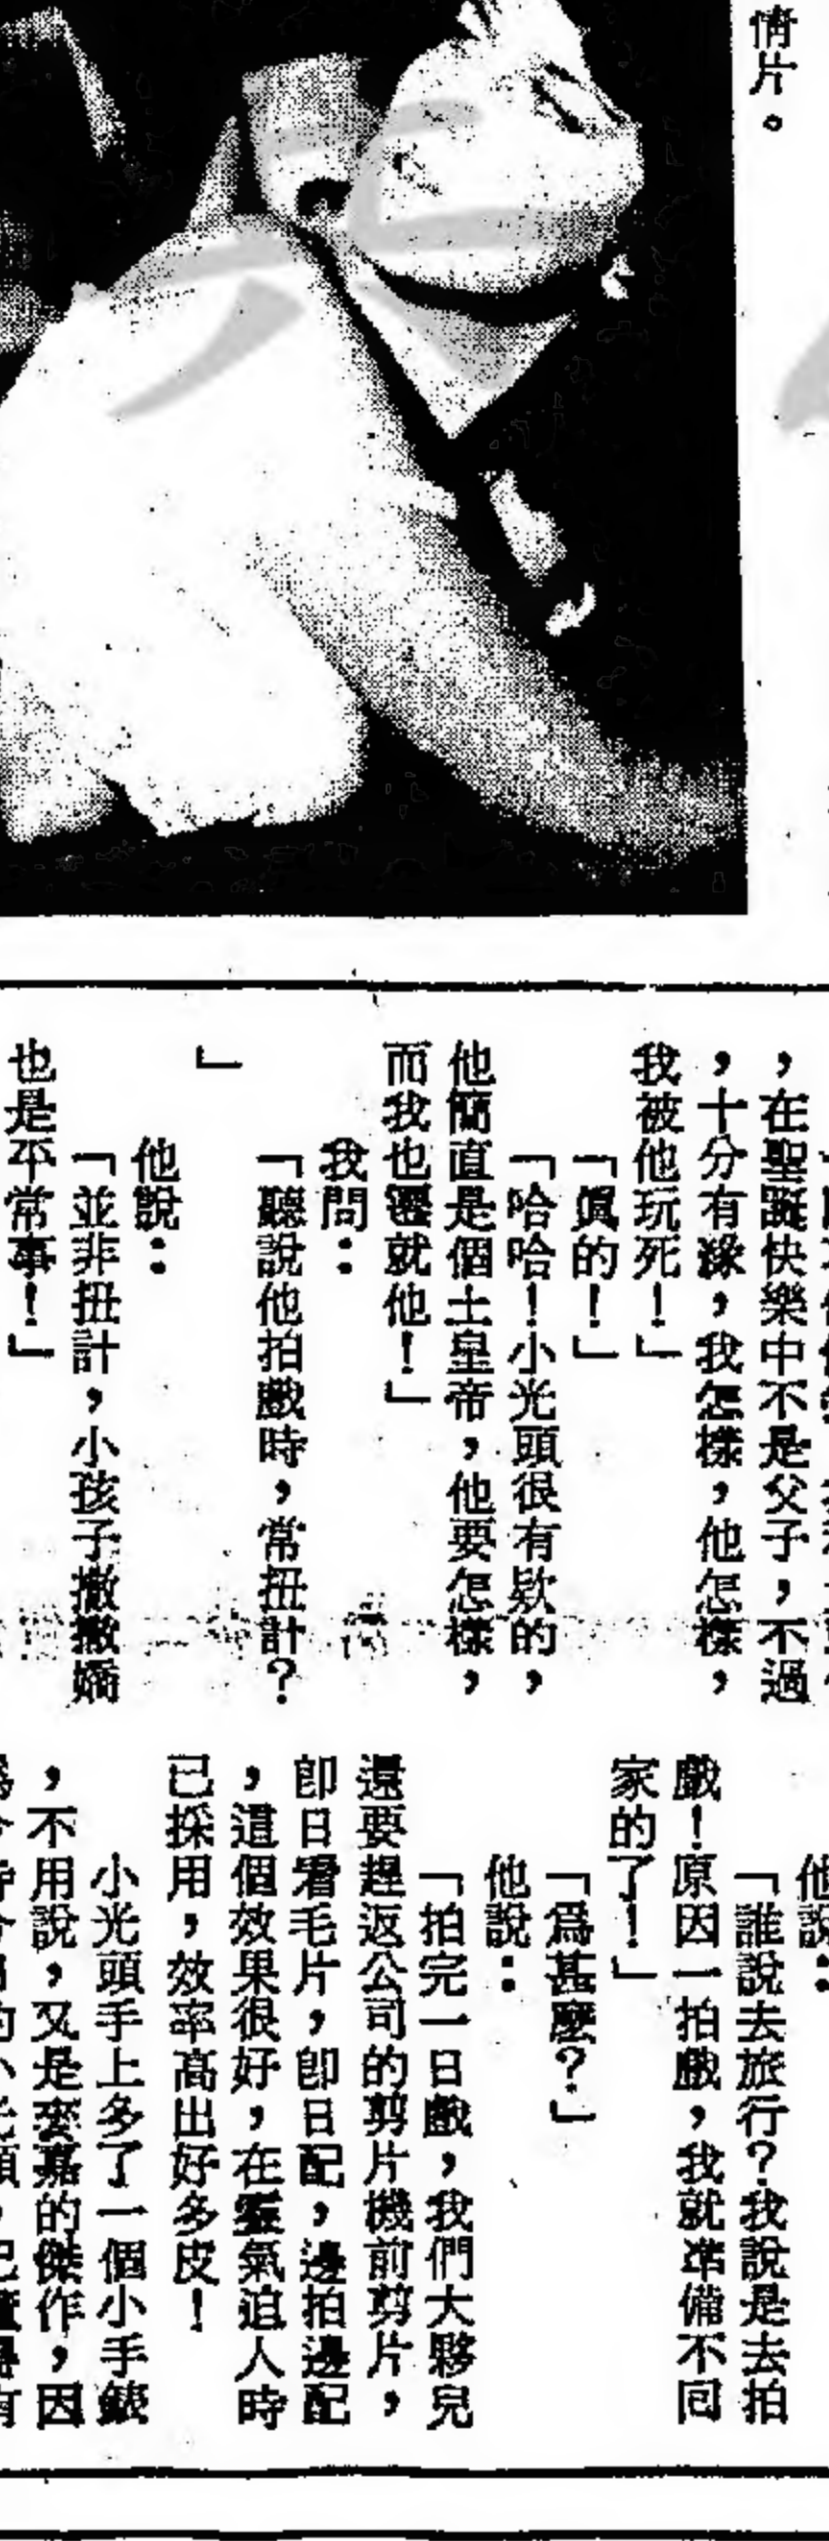 情片。
，在聖誕快樂中不是父子，不過
，十分有緣，我怎樣，他怎樣，
我被他玩死！」
「眞的！」
「哈哈！小光頭很有欵的，
他簡直是個土皇帝，他要怎樣，
而我也遷就他！」
我問：
「聽說他拍戲時，常扭計？
」
他說：
「並非扭計，小孩子撒撒嬌
也是平常事！」
他說：
「誰說去旅行？我說是去拍
戲！原因一拍戲，我就準備不同
家的了！」
「爲甚麼？」
他說：
「拍完一日戲，我們大夥兒
還要趕返公司的剪片機前剪片，
卽日看毛片，卽日配，邊拍邊配
，這個效果很好，在靈氣迫人時
已採用，效率高出好多皮！
小光頭手上多了一個小手錶
，不用說，又是麥嘉的傑作，因